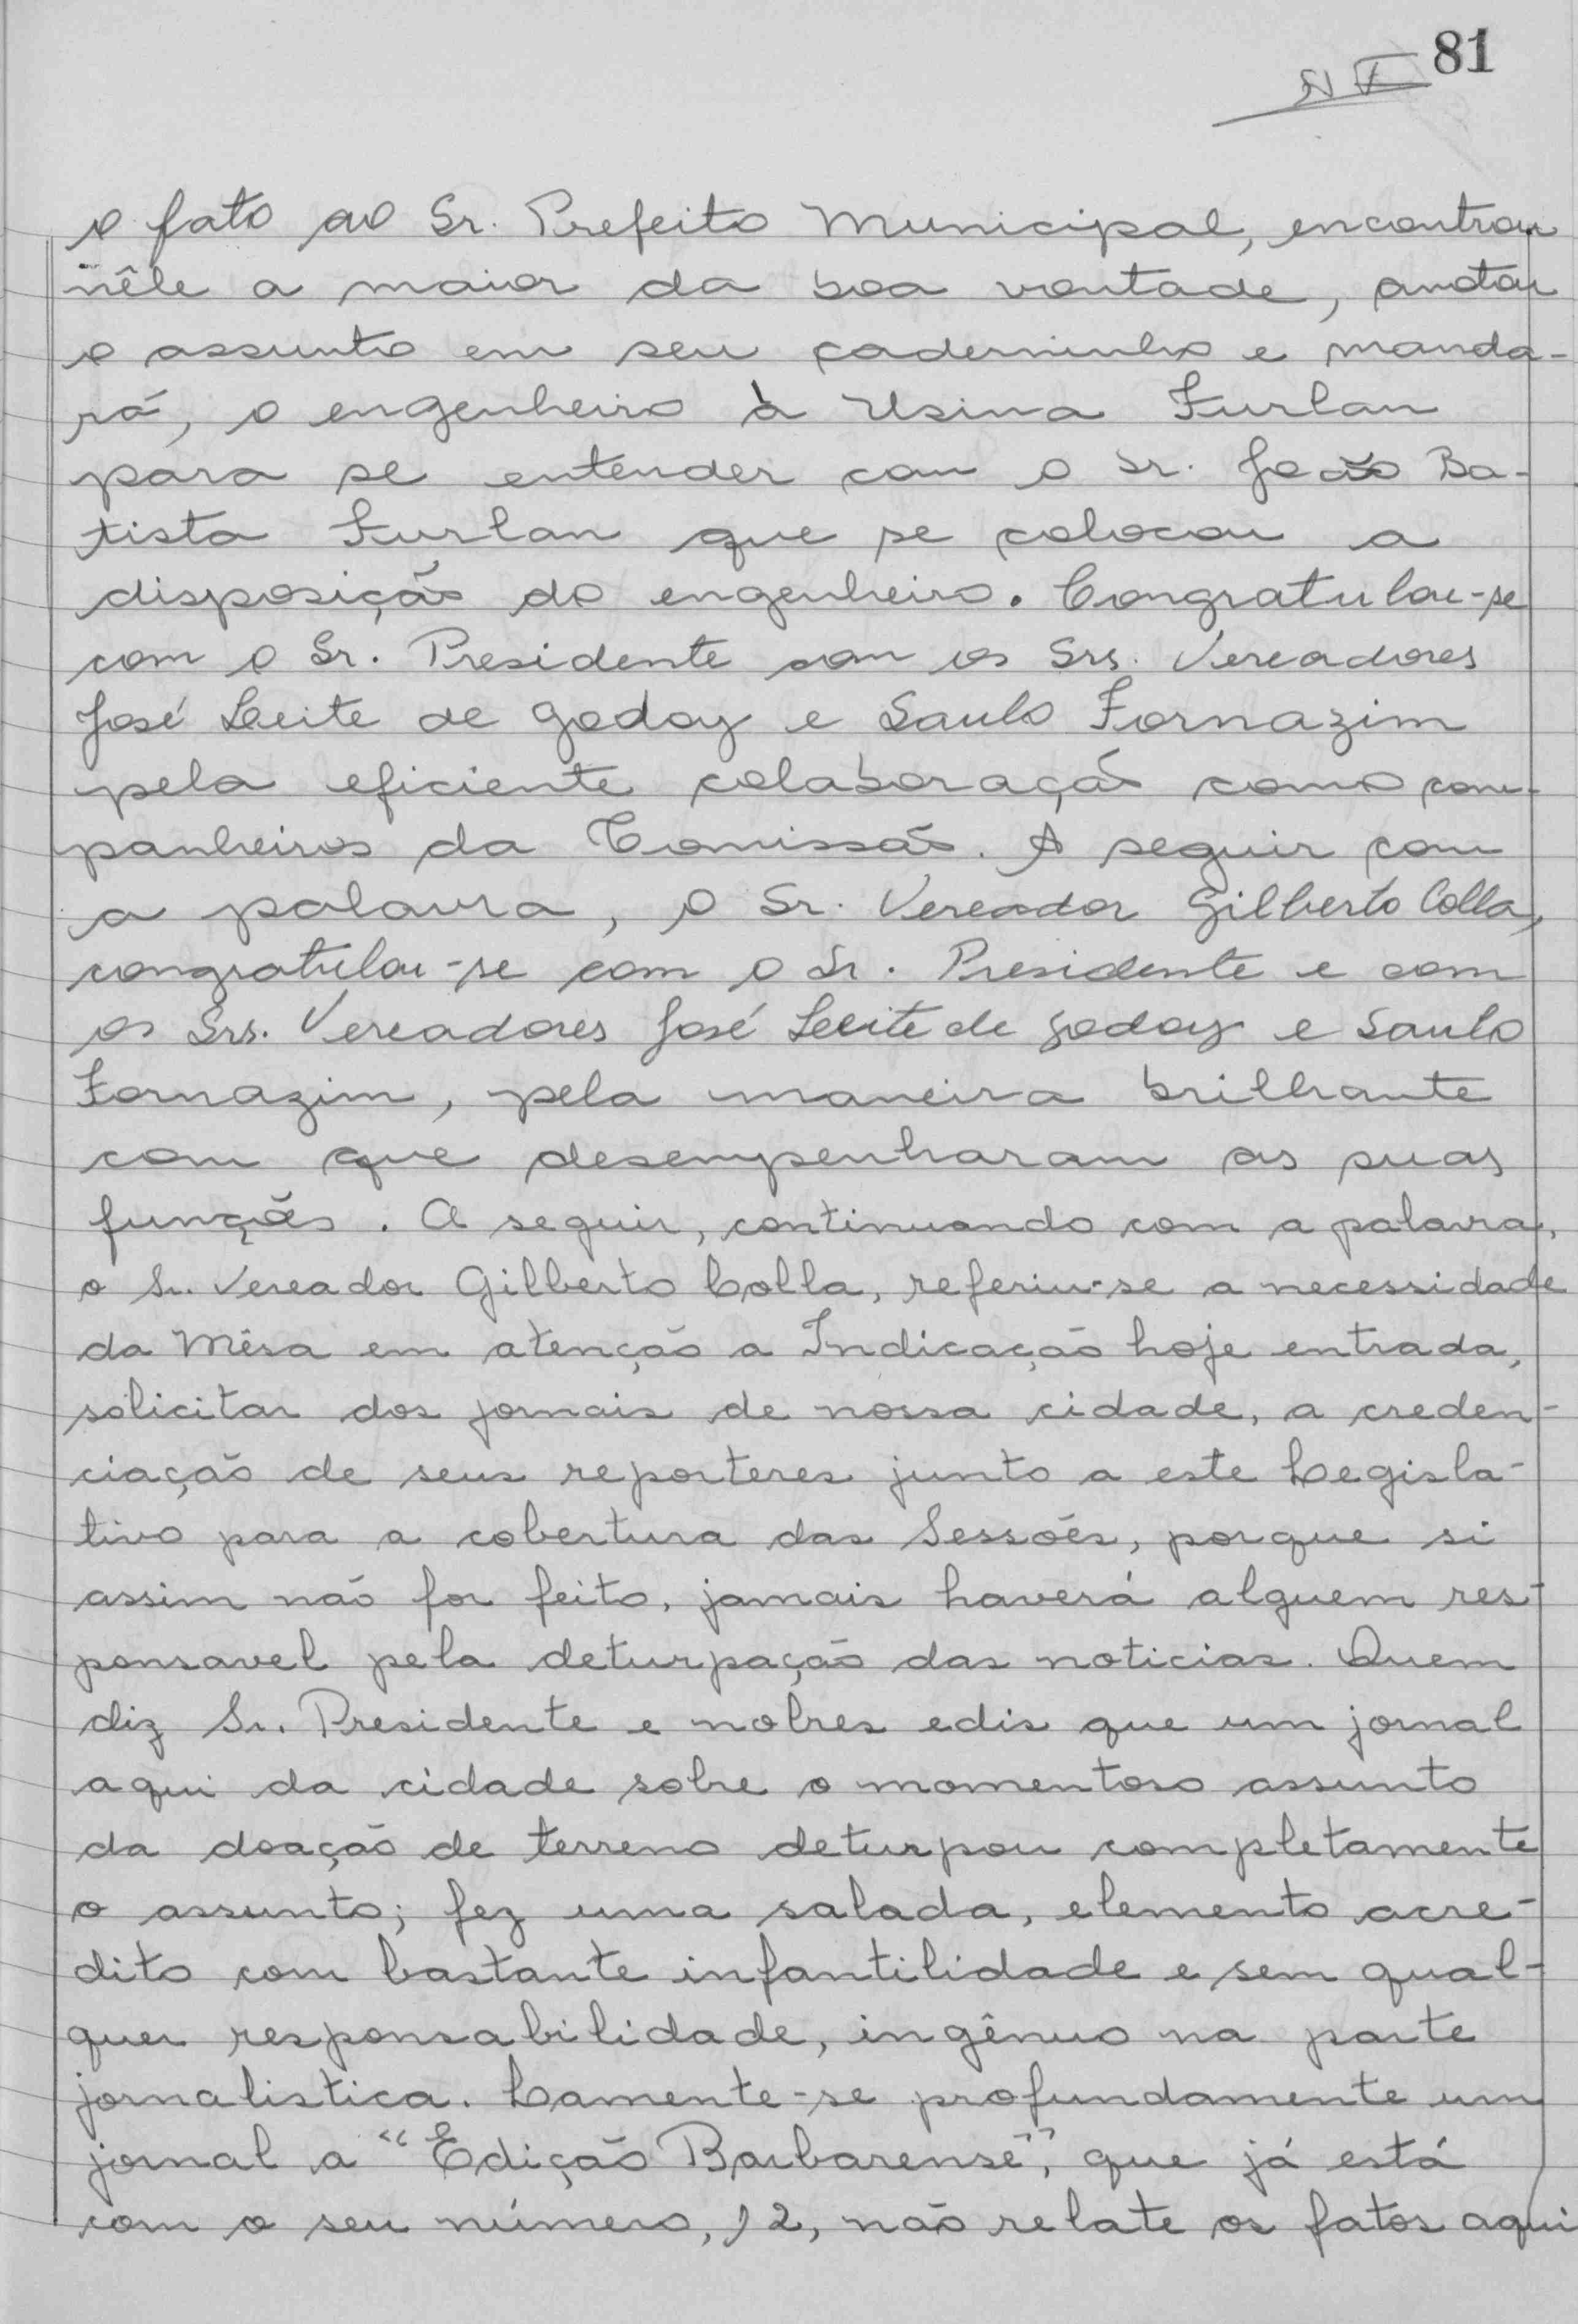 81
o fato ao Sr. Prefeito Municipal, encontrou
nêle a maior da boa vontade, anotou
o assunto em seu caderninho e manda-
rá, o engenheiro à Usina Furlan
para se entender com o Sr. João Ba-
tista Furlan que se colocou a
disposição do engenheiro. Congratulou-se
com o Sr. Presidente com os Srs. Vereadores
José Leite de Godoy e Saulo Fornazim
pela eficiente colaboração como com-
panheiros da Comissão. A seguir com
a palavra, o Sr. Vereador Gilberto Colla,
congratulou-se com o Sr. Presidente e com
os Srs. Vereadores José Leite de Godoy e Saulo
Fornazim, pela maneira brilhante
com que desempenharam as suas
funções. A seguir, continuando com a palavra,
o Sr. Vereador Gilberto Colla, referiu-se a necessidade
da Mêsa em atenção a Indicação hoje entrada,
solicitar dos jornais de nossa cidade, a creden-
ciação de seus reporteres junto a este Legisla-
tivo para a cobertura das Sessões, porque si
assim não for feito, jamais haverá alguem res-
ponsavel pela deturpação das noticias. Quem
diz Sr. Presidente e nobres edis que um jornal
aqui da cidade sobre o momentoso assunto
da doação de terreno deturpou completamente
o assunto; fez uma salada, elemento acre-
dito com bastante infantilidade e sem qual-
quer responsabilidade, ingênuo na parte
jornalistica. Lamente-se profundamente um
jornal a "Edição Barbarense", que já está
com o seu número, 12, não relate os fatos aqui